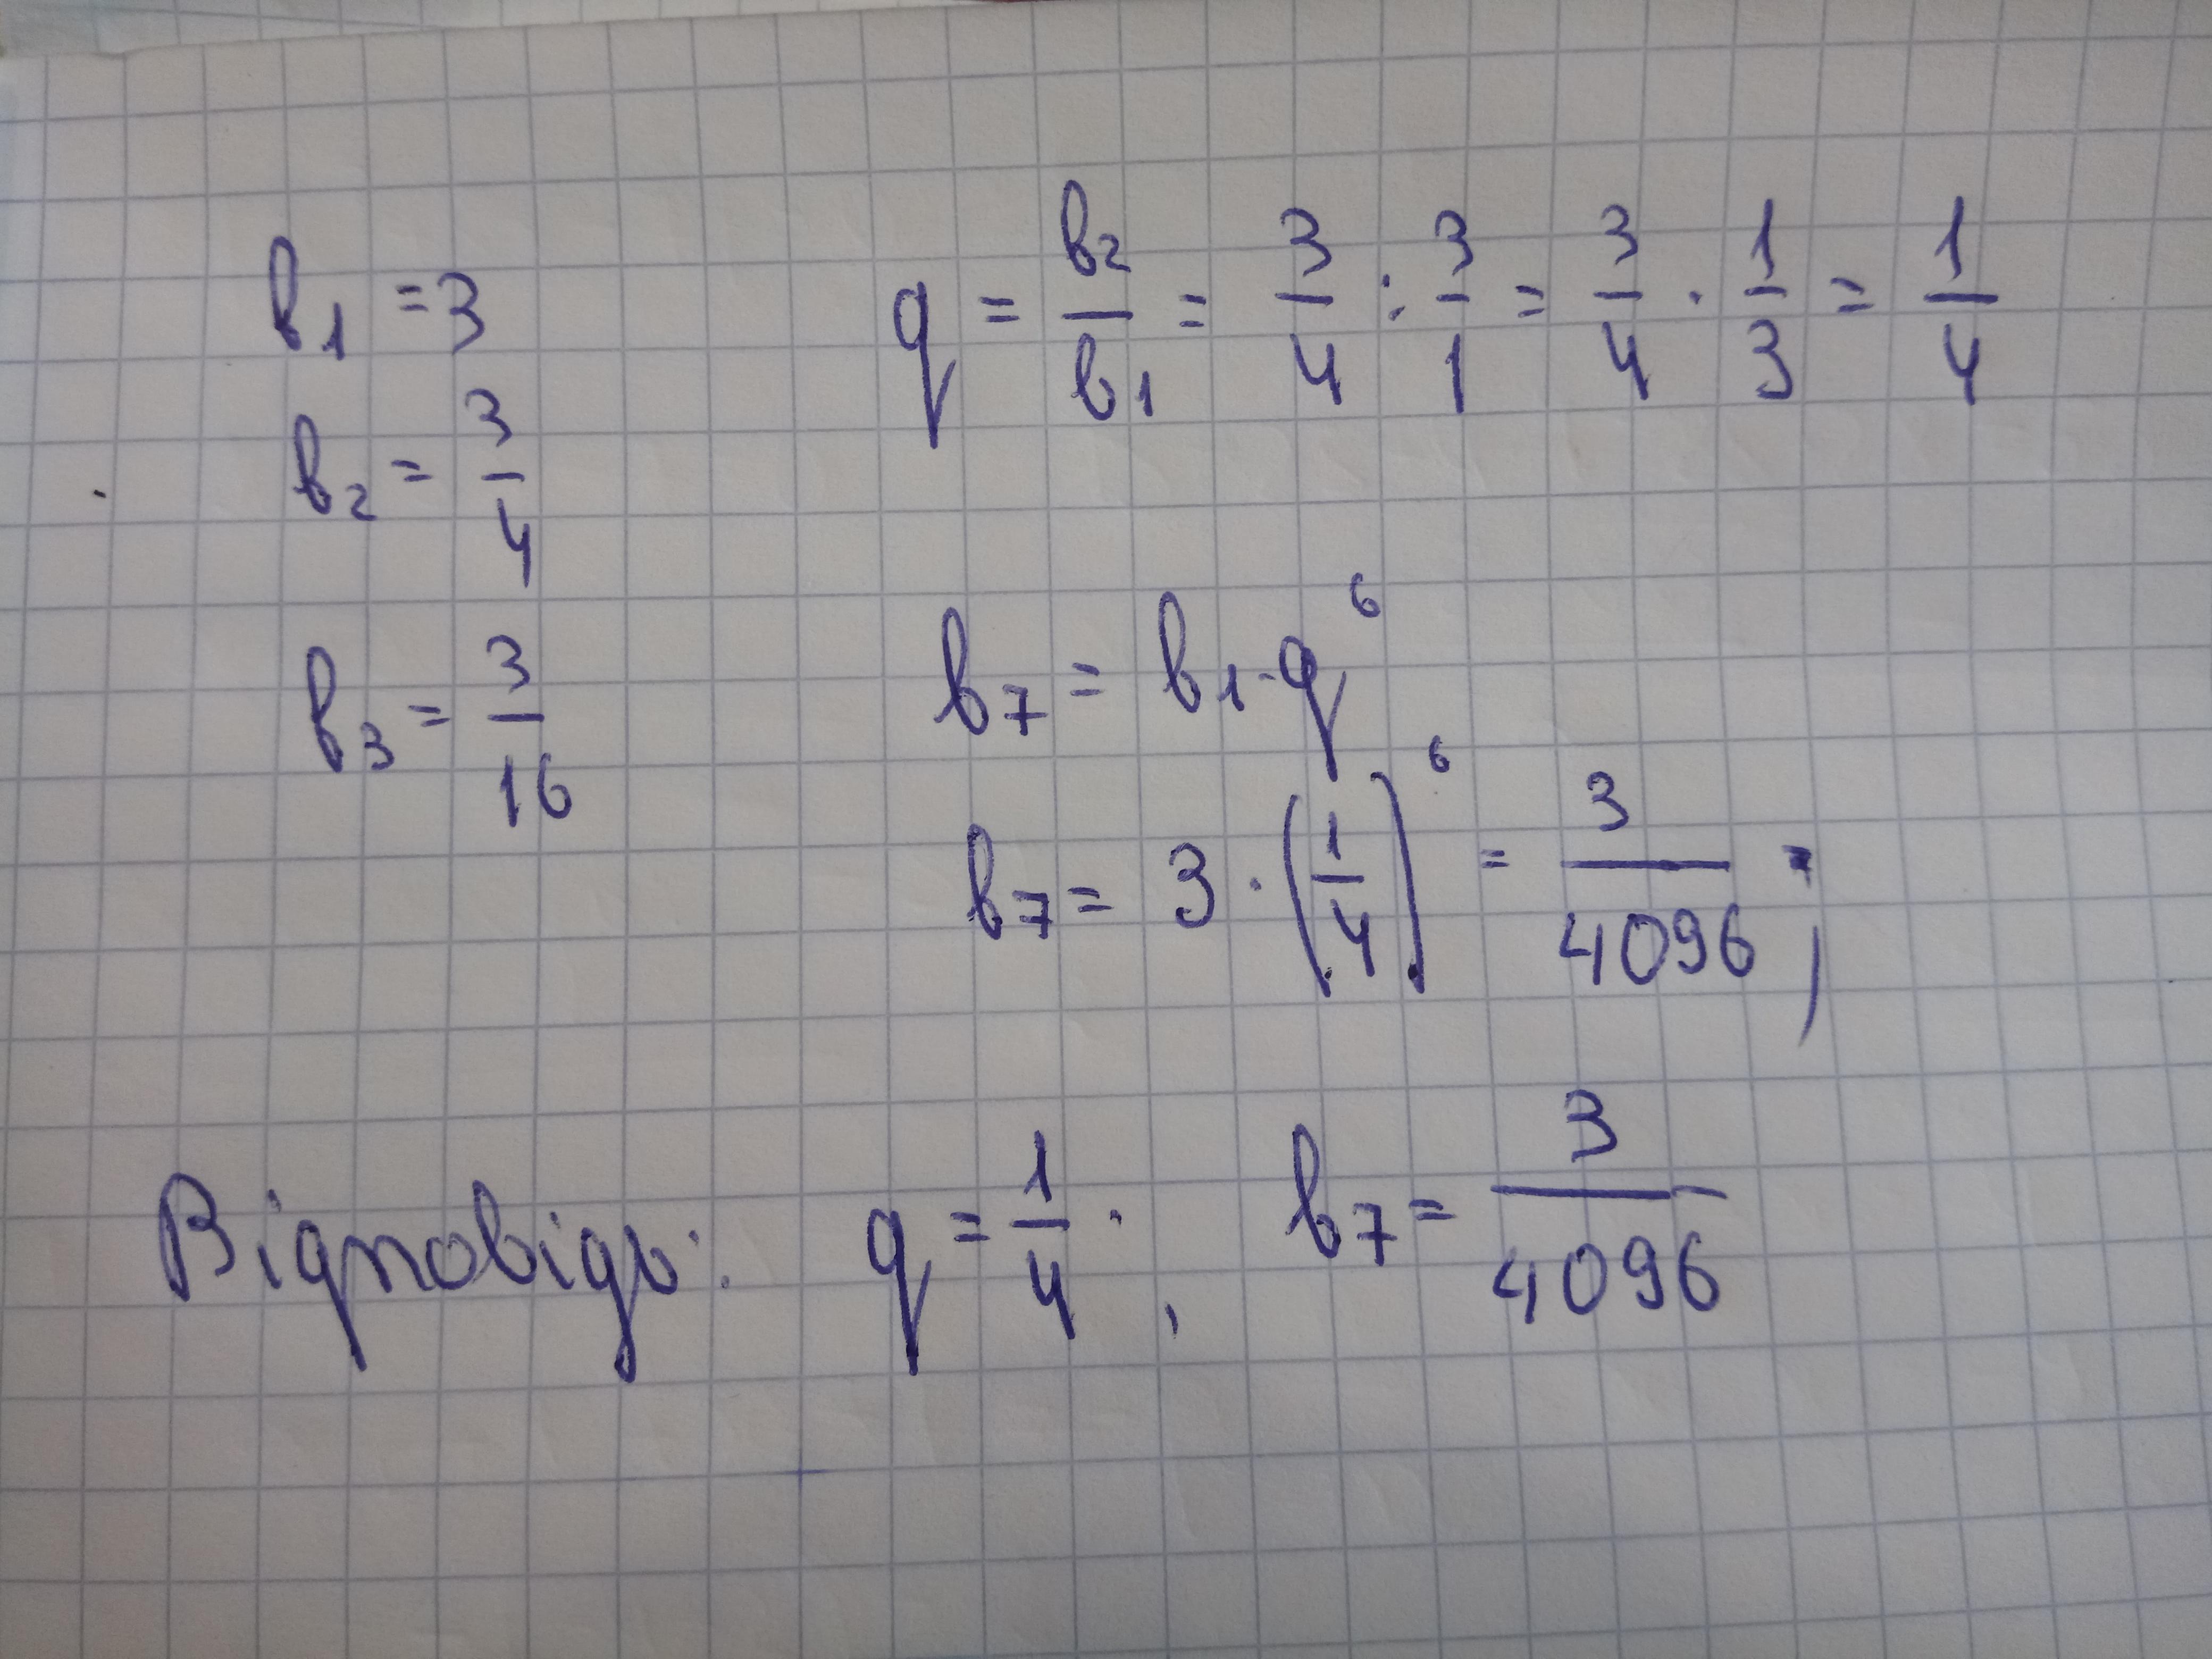 b₁ = 3
b₂ = 3/4
b₃ = 3/16
q = b₂/b₁ = 3/4 : 3/1 = 3/4 · 1/3 = 1/4
b₇ = b₁·q⁶
b₇ = 3 · (1/4)⁶ = 3/4096 ;
Відповідь: q = 1/4 ; b₇ = 3/4096